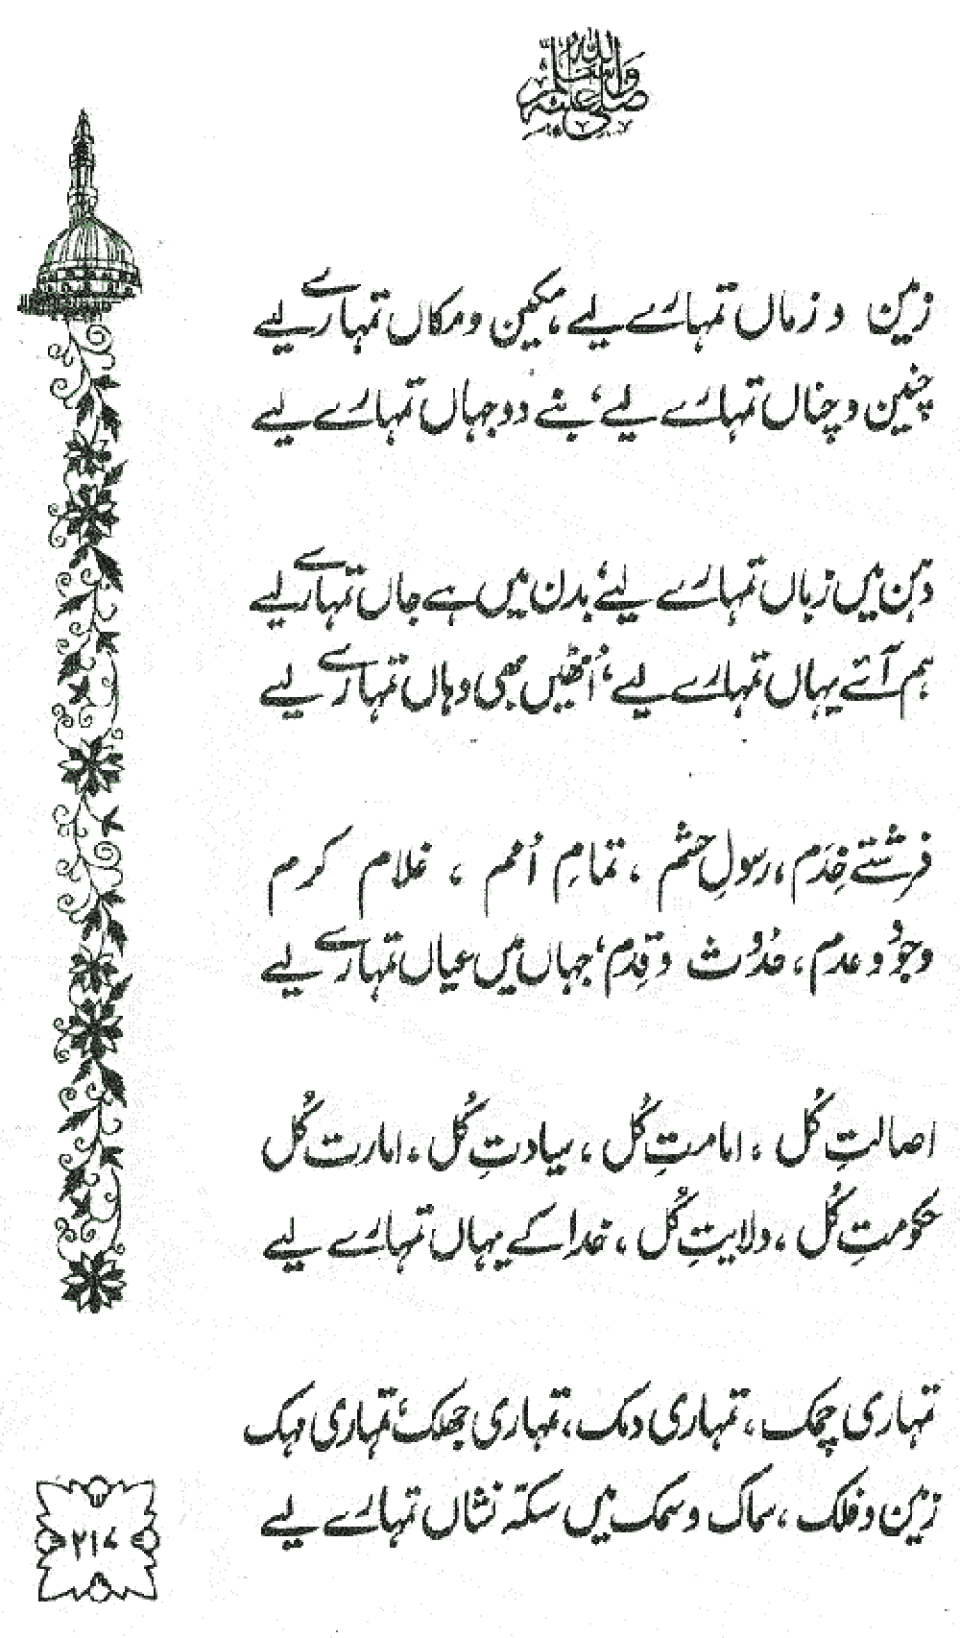 صلی اللہ علیہ وآلہ وسلم
زمین و زماں تمہارے لیے، مکین و مکاں تمہارے لیے
چنین و چناں تمہارے لیے، بنے دو جہاں تمہارے لیے
دہن میں زباں تمہارے لیے، بدن میں ہے جاں تمہارے لیے
ہم آئے یہاں تمہارے لیے، اُٹھیں بھی وہاں تمہارے لیے
فرشتے خِدَم، رسولِ حشم، تمامِ اُمم، غلام کرم
وجوُد و عدم، حُدُوث و قِدم، جہاں میں عیاں تمہارے لیے
اصالتِ کُل، امامتِ کُل، سیادتِ کُل، امارت کُل
حکومتِ کُل، ولایتِ کُل، خدا کے یہاں تمہارے لیے
تمہاری چمک، تمہاری دمک، تمہاری جھلک، تمہاری مہک
زمین و فلک، سماک و سمک میں سکّہ نشاں تمہارے لیے